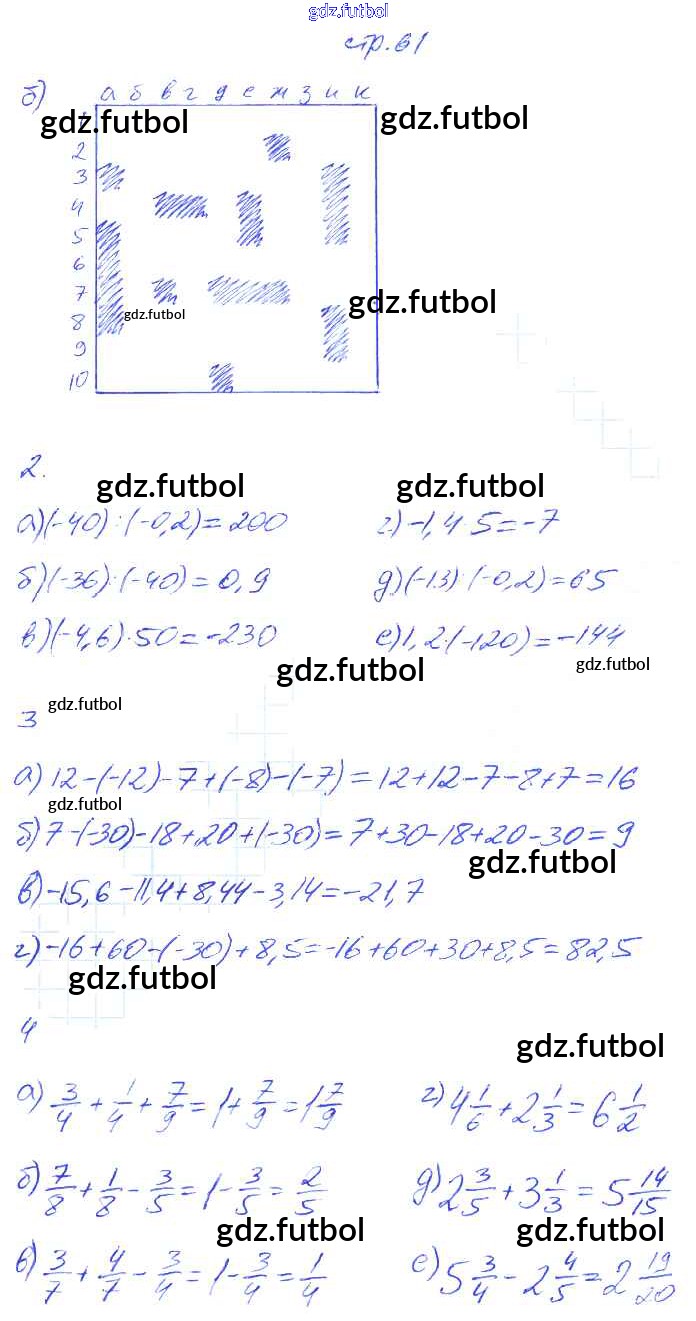 gdz.futbol
стр. 61
б) а б в г д е ж з и к
gdz.futbol gdz.futbol
2
3
4
5
6
7
gdz.futbol
8 gdz.futbol
9
10
2.
gdz.futbol gdz.futbol
а) (-40) : (-0,2) = 200 г) -1,4 · 5 = -7
б) (-36) : (-40) = 0,9 д) (-13) : (-0,2) = 65
в) (-4,6) · 50 = -230 е) 1,2 · (-120) = -144
gdz.futbol gdz.futbol
3 gdz.futbol
а) 12 - (-12) - 7 + (-8) - (-7) = 12 + 12 - 7 - 8 + 7 = 16
gdz.futbol
б) 7 - (-30) - 18 + 20 + (-30) = 7 + 30 - 18 + 20 - 30 = 9
gdz.futbol
в) -15,6 - 11,4 + 8,44 - 3,14 = -21,7
г) -16 + 60 - (-30) + 8,5 = -16 + 60 + 30 + 8,5 = 82,5
gdz.futbol
4
gdz.futbol
а) 3/4 + 1/4 + 7/9 = 1 + 7/9 = 1 7/9 г) 4 1/6 + 2 1/3 = 6 1/2
б) 7/8 + 1/8 - 3/5 = 1 - 3/5 = 2/5 д) 2 3/5 + 3 1/3 = 5 14/15
gdz.futbol gdz.futbol
в) 3/7 + 4/7 - 3/4 = 1 - 3/4 = 1/4 е) 5 3/4 - 2 4/5 = 2 19/20